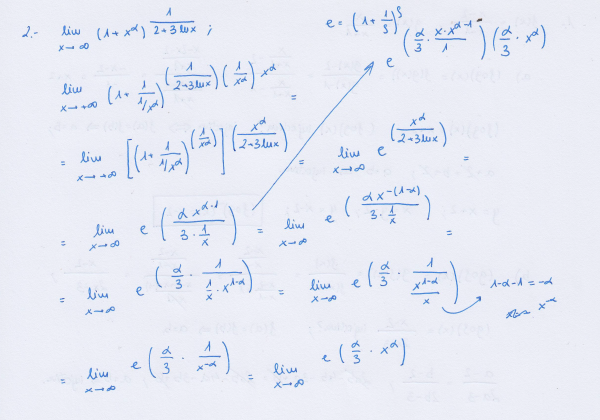 2.- lim x→∞ (1 + x^α)^(1/(2+3lnx)) ;
e = (1 + 1/ξ)^ξ
e^((α/3 · x·x^(α-1)/1)) (α/3 · x^α)
lim x→+∞ (1 + 1/(1/x^α))^((1/(2+3lnx)) (1/x^α) x^α) =
= lim x→+∞ [(1 + 1/(1/x^α))^(1/x^α)]^(x^α/(2+3lnx)) = lim x→∞ e^(x^α/(2+3lnx)) =
= lim x→∞ e^(α x^(α-1)/(3 · 1/x)) = lim x→∞ e^(α x^(-(1-α))/(3 · 1/x)) =
= lim x→∞ e^(α/3 · 1/(1/x · x^(1-α))) = lim x→∞ e^(α/3 · 1/(x^(1-α)/x))
1-α-1 = -α
x^-α
= lim x→∞ e^(α/3 · 1/x^-α) = lim x→∞ e^(α/3 · x^α)